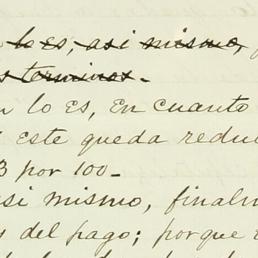 lo es, asi mismo,
terminos.
lo es, en cuanto
este queda redu
3 por 100_
asi mismo, finalm
del pago; porque